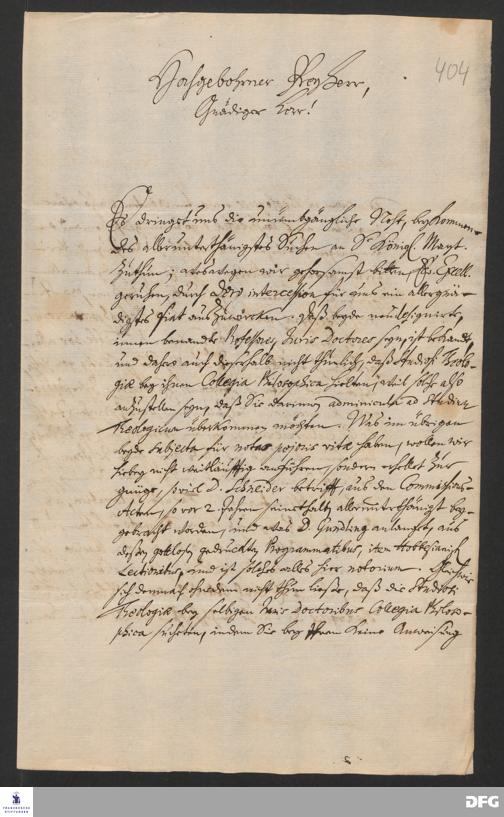 404
Hochgebohrner Freyherr,
Gnädiger Herr!
Es dringet uns die unumbgängliche Noht, beykommen-
des allerunterthänigstes Suchen an Sr Königl. Mayt.
zu thun; weswegen wir gehorsamst bitten Ew. Excell.
geruhen, durch Dero intercession für uns ein allergnä-
digstes fiat auszuwircken. Daß beyde neu designirte,
innen benandte Professores, Juris Doctores seyn, ist bekandt,
und dahero auch dieserhalb nicht thunlich, daß Studiosi Theolo-
giæ bey ihnen Collegia Philosophica hielten, weil solche also
anzustellen seyn, daß Sie darinnen adminicula ad Studium
Theologicum überkommen möchten. Was im übrigen
beyde subjecta für notas pejoris vitæ haben, wollen wir
hierbey nicht weitläufftig anführen, sondern erhellet zur
gnüge, so viel D. Schneider betrifft, aus den Commissions-
Acten, so vor 2. Jahren allerunterthänigst bey-
gebracht worden, und was D. Gundling anlanget, aus
dessen gottlosen gedruckten Programmatibus, item Hobbesianisch
Lectionibus, und ist solches alles hier notorium.
sich demnach ohnedem nicht thun ließe, daß die Studiosi
Theologiæ bey selbigen Juris Doctoribus Collegia Philoso-
phica hielten, indem Sie bey ihnen keine Anweisung
FRANCKESCHE
STIFTUNGEN
DFG